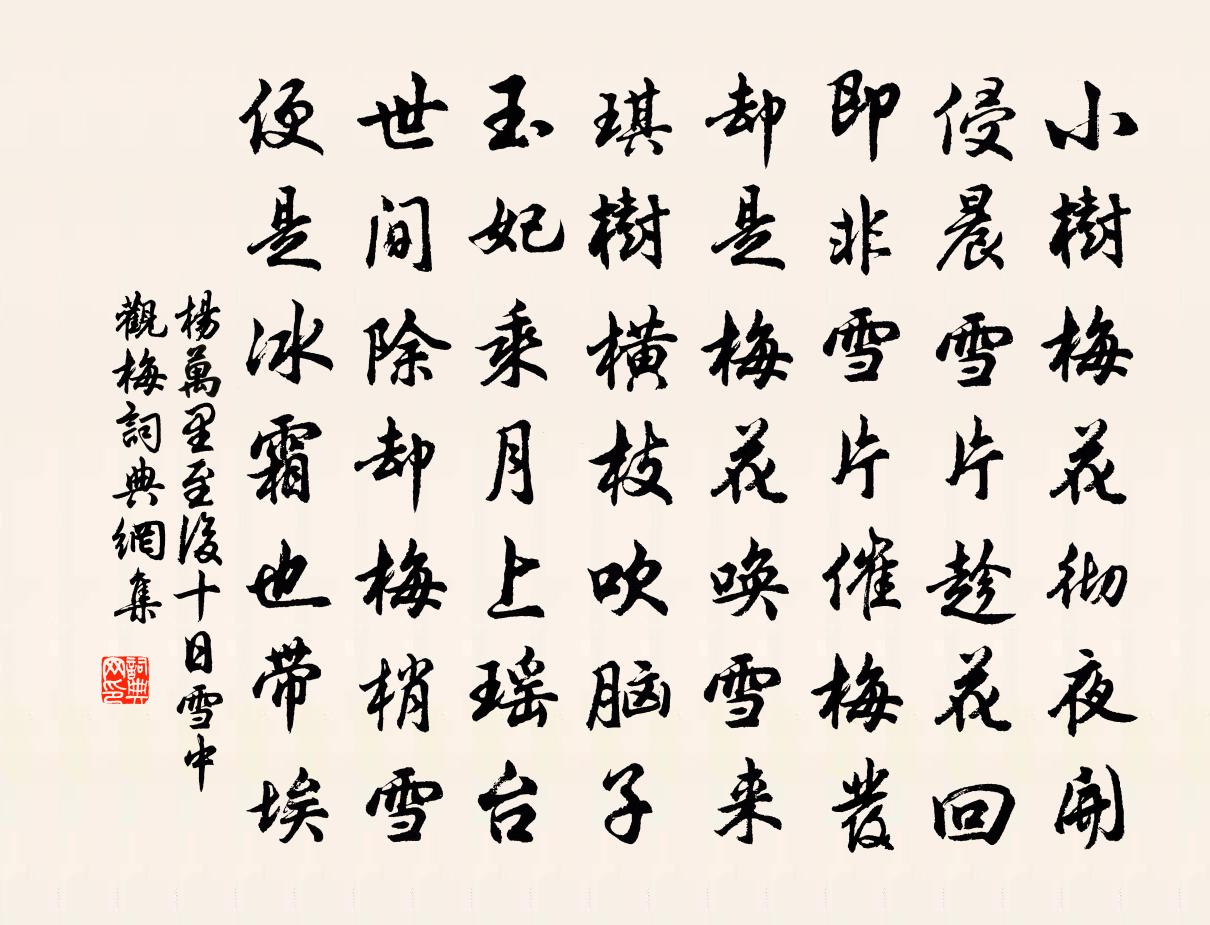 小樹梅花彻夜開
侵晨雪片趁花回
即非雪片催梅發
却是梅花喚雪来
琪樹橫枝吹脑子
玉妃乘月上瑶台
世间除却梅梢雪
便是冰霜也带埃
楊萬里至後十日雪中
觀梅詞典網集
詞典
网印